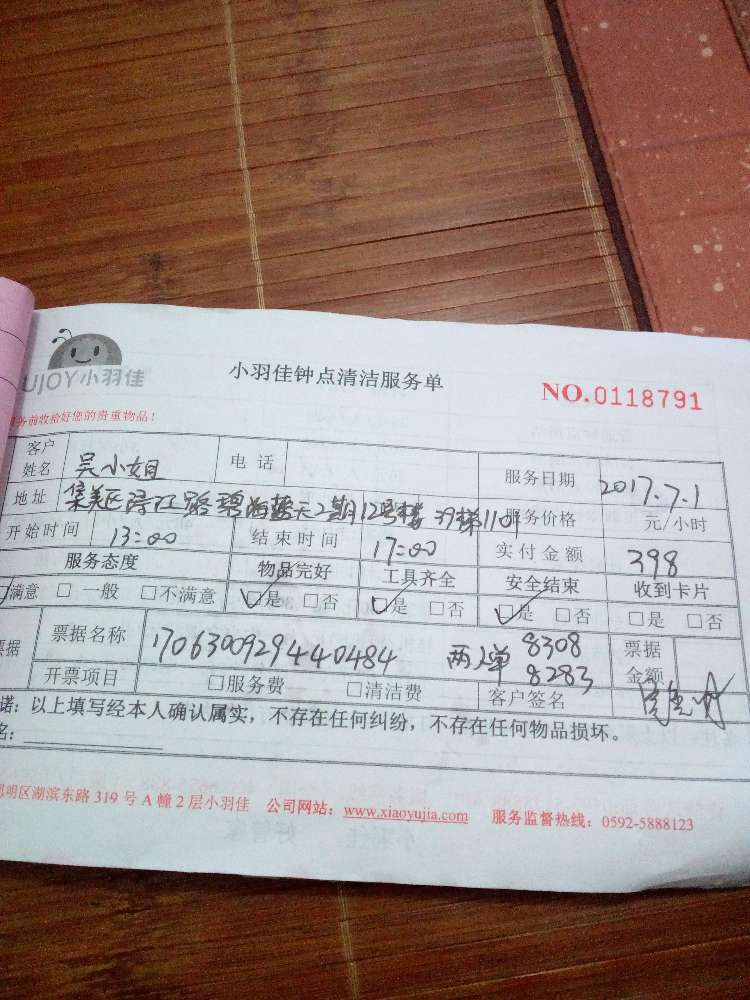 UJOY小羽佳
小羽佳钟点清洁服务单
NO.0118791
务前收拾好您的贵重物品！
客户姓名 吴小姐 电话 服务日期 2017.7.1
地址 集美区浔江路碧海蓝天2期12号楼 39梯1101 服务价格 元/小时
开始时间 13:00 结束时间 17:00 实付金额 398
服务态度 物品完好 工具齐全 安全结束 收到卡片
满意 □ 一般 □不满意 □是 □否 □是 □否 □是 □否 □是 □否
票据 票据名称 170630092944440484 两单 8308 8283 票据金额
开票项目 □服务费 □清洁费 客户签名
诺：以上填写经本人确认属实，不存在任何纠纷，不存在任何物品损坏。
名：
思明区湖滨东路 319 号 A 幢 2 层小羽佳 公司网站：www.xiaoyujia.com 服务监督热线：0592-5888123